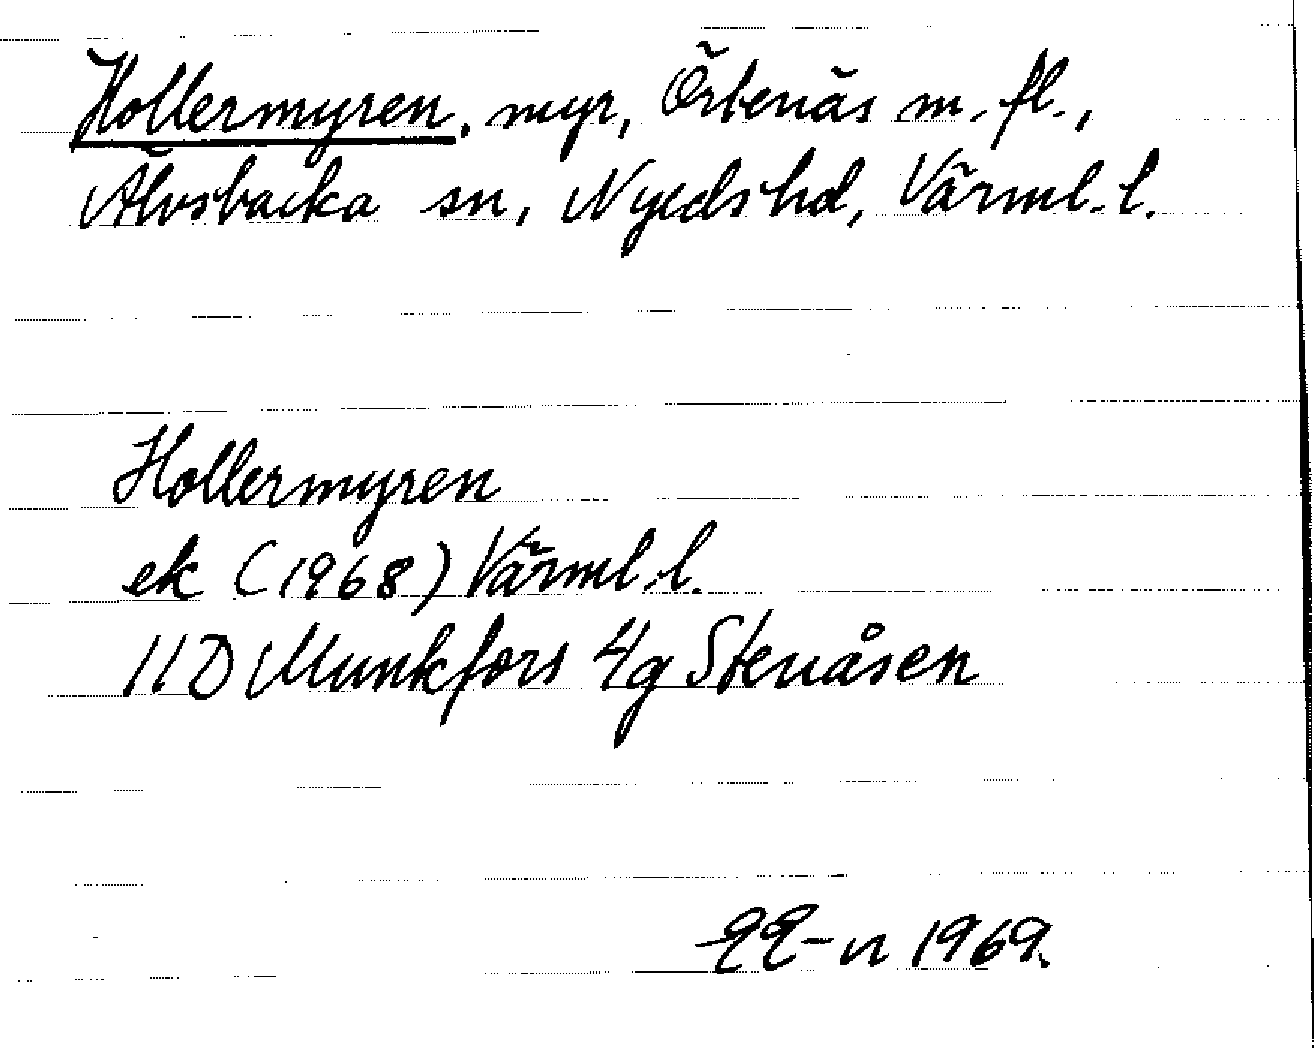 Hollermyren, myr, Örtenäs m. fl.,
Älvsbacka sn, Nyeds hd, Värml. l.
Hollermyren
ek (1968) Värml. l.
11D Munkfors 4g Stenåsen
1969.